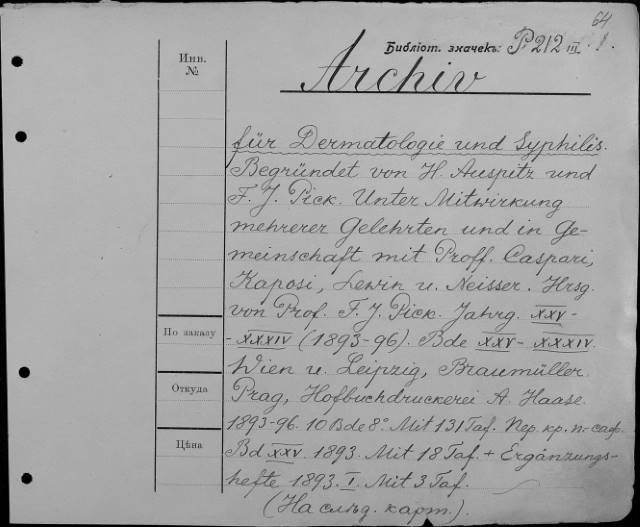 64
Библіот. значекъ: P. 212 III. 1.
Инв.
№
Archiv
für Dermatologie und Syphilis.
Begründet von H. Auspitz und
F. J. Pick. Unter Mitwirkung
mehrerer Gelehrten und in Ge-
meinschaft mit Proff. Caspari,
Kaposi, Lewin u. Neisser. Hrsg.
von Prof. F. J. Pick. Jahrg. XXV-
-XXXIV (1893-96). Bde XXV-XXXIV.
По заказу
Wien u. Leipzig, Braumüller.
Откуда
Prag, Hofbuchdruckerei A. Haase
1893-96. 10 Bde 8° Mit 131 Taf. Пер. кр. п.-саф.
Цѣна
Bd XXV. 1893. Mit 18 Taf. + Ergänzungs-
hefte 1893. I. Mit 3 Taf.
(На слѣд. карт.).